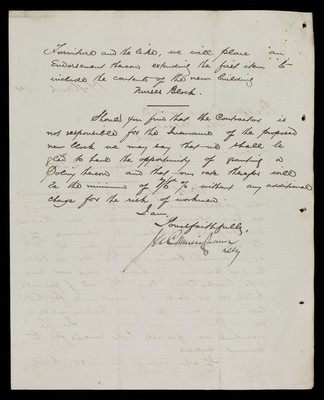 Furniture and the like, we will place an
Endorsement thereon extending the first item to
include the contents of the new building
Nurses Block.
Should you find that the Contractor is
not responsible for the Insurance of the proposed
new block we may say that we shall be
glad to have the opportunity of granting a
Policy hereon and that our rate therefor will
be the minimum of 1/6 %, without any additional
charge for the risk of workmen.
I am,
Yours faithfully,
Secy